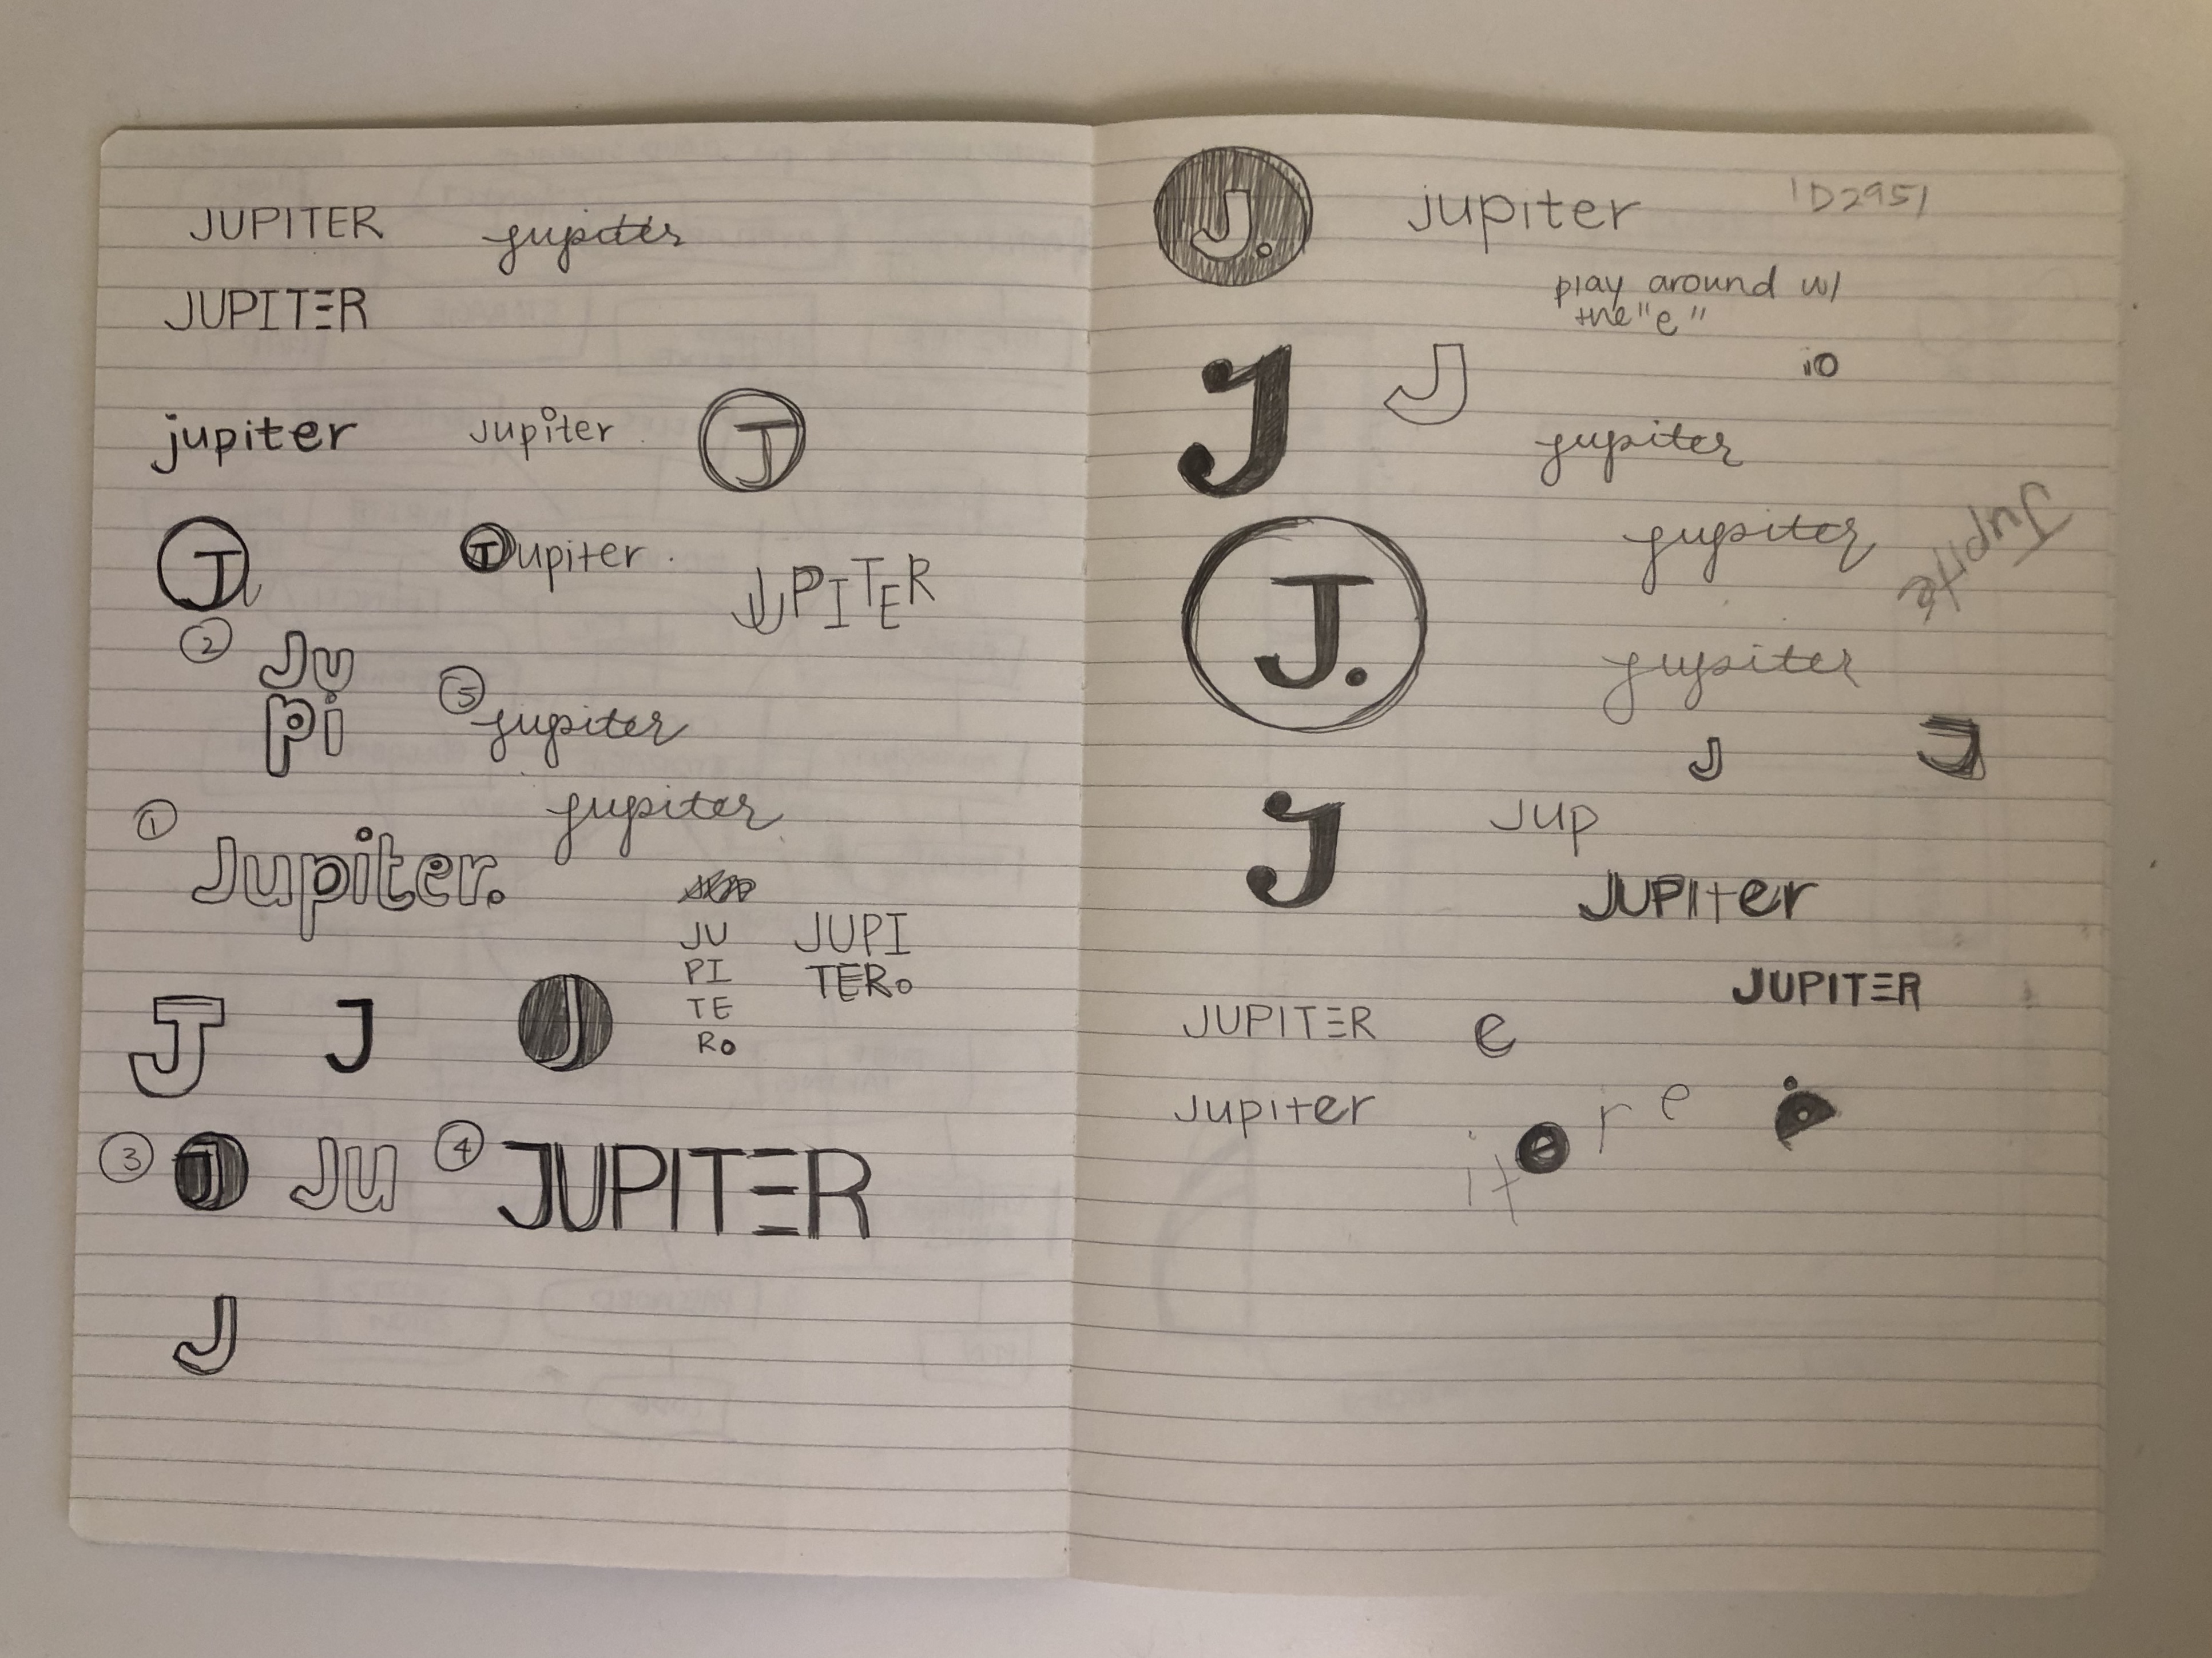 JUPITER
jupiter
JUPITER
jupiter
Jupiter
J
J
Jupiter
JUPITER
2
Ju
pi
5
jupiter
jupiter
1
Jupiter.
JU
PI
TE
Ro
JUPI
TERo
J
J
J
3
J
Ju
4
JUPITER
J
J.
jupiter
ID2951
play around w/
the "e"
io
J
J
jupiter
jupiter
Jupite
J.
jupiter
J
J
J
Jup
JUPITer
JUPITER
JUPITER
e
Jupiter
it e r e